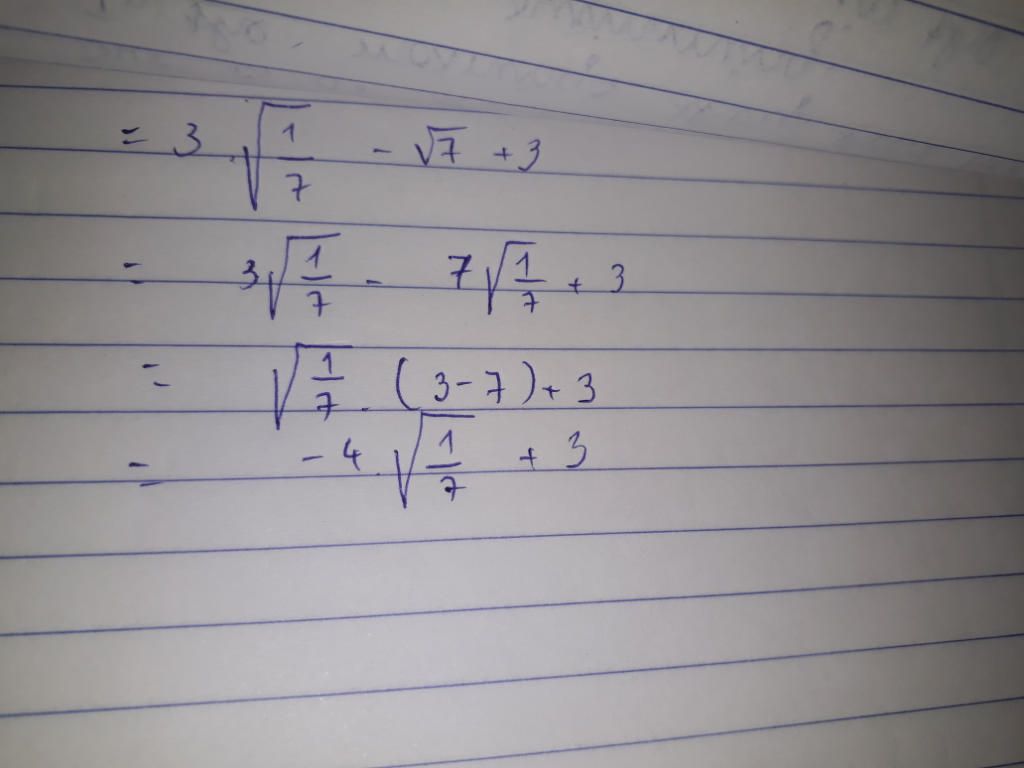 = 3 . √(1/7) - √7 + 3
= 3 √(1/7) - 7 √(1/7) + 3
= √(1/7) . (3 - 7) + 3
= - 4 . √(1/7) + 3